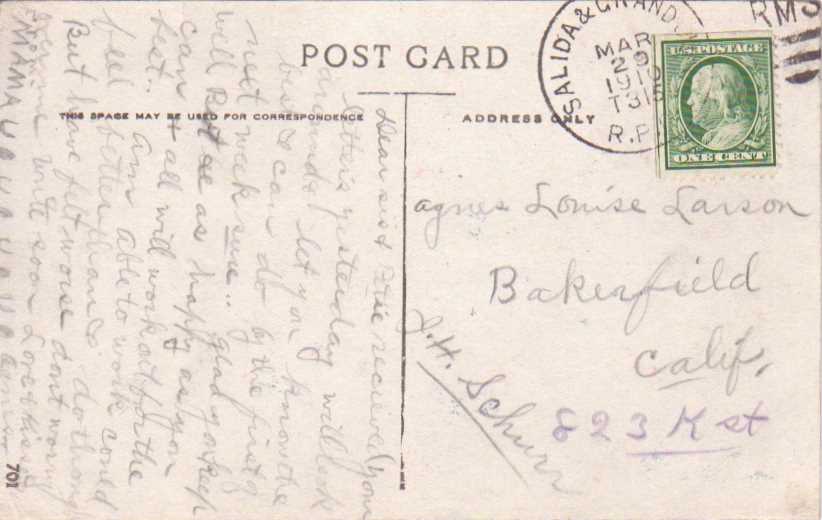 POST CARD
THIS SPACE MAY BE USED FOR CORRESPONDENCE
ADDRESS ONLY
SALIDA & GRAND
MAR
29
1910
T315
R.P.
RMS
U.S. POSTAGE
ONE CENT
Agnes Louise Larson
Bakerfield
Calif.
823 K st
J.H. Schurr
Dear sist recieved your
letters yesterday will look
around & let you know the
best I can do by the first of
next week sure.. glad you keep
well as happy as you
can & all will work out for the
best. Am able to work could
feel better than I do though
But have felt worse dont worry
write soon Love & kisses
MAMA
701